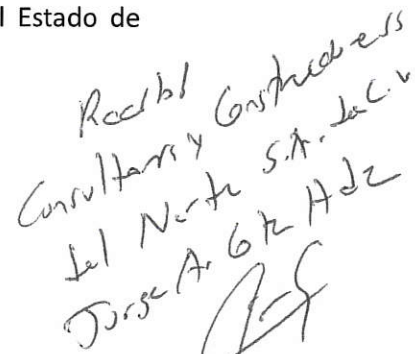 l Estado de
Recibí
Consultores y Constructores
del Norte S.A. de C.V
Jorge A. Gtz Hdz